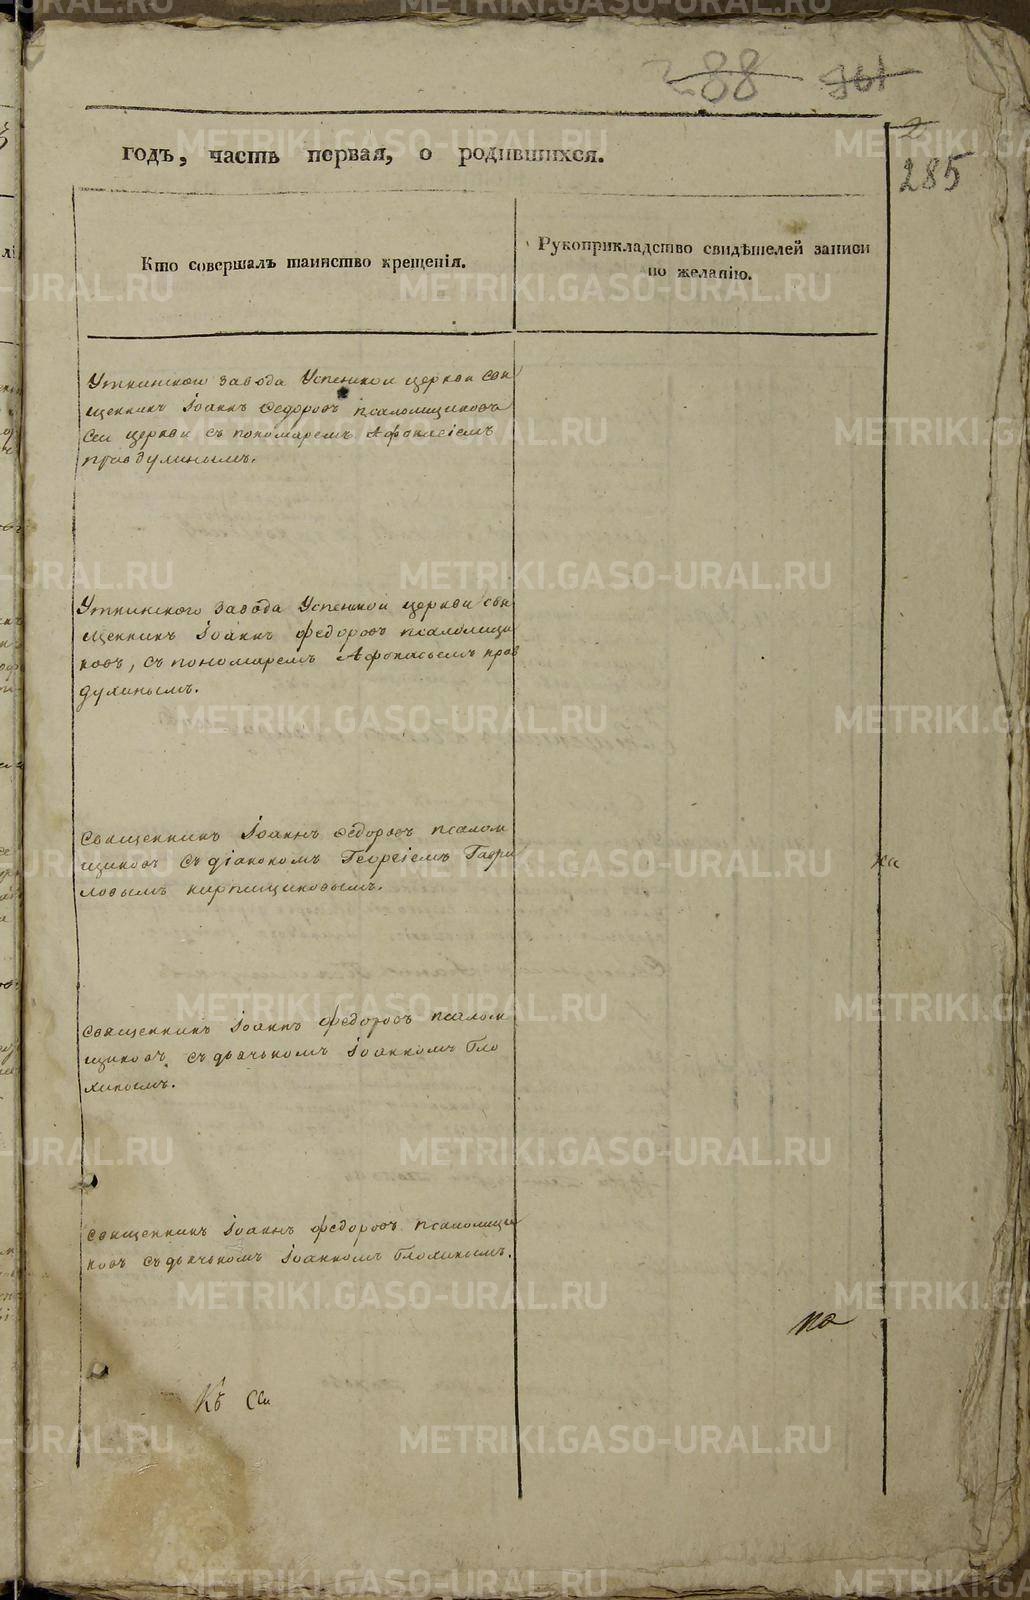 288 301
2
285
годъ, часть первая, о родившихся.
Кто совершалъ таинство крещенія.
Рукоприкладство свидѣтелей записи
по желанію.
Уткинского завода Успенкой церкви свя
щенникъ Іоаннъ Федоровъ псаломщиковъ
сеи церкви съ пономаремъ Афонасіемъ
правдухинымъ.
Уткинского завода Успенкой церкви свя
щенникъ Іоаннъ федоровъ псаломщи
ковъ, съ пономаремъ Афонасьемъ прав
духинымъ.
священникъ Іоаннъ федоровъ псалом
щиковъ съ діакономъ Георгіемъ Гаври
ловымъ кирпищиковымъ.
священникъ Іоаннъ федоровъ псалом
щиковъ съ дьячькомъ Іоанномъ бло
хинымъ.
священникъ Іоаннъ федоровъ псаломщи
ковъ съ дьячькомъ Іоанномъ блохинымъ.
по
Къ Сеи
METRIKI.GASO-URAL.RU